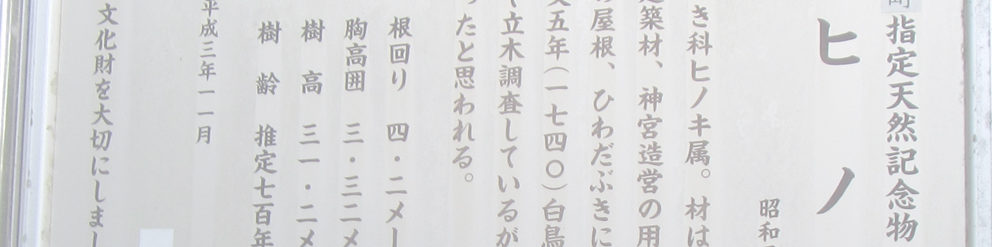 指定天然記念物
ヒノ
昭和
き科ヒノキ属。材は
築材、神宮造営の用
屋根、ひわだぶきに
五年(一七四〇)白鳥
立木調査しているが
ったと思われる。
根回り 四・二メー
胸高囲 三・三二メ
樹高 三一・二メ
樹齢 推定七百年
平成三年一一月
文化財を大切にしまし